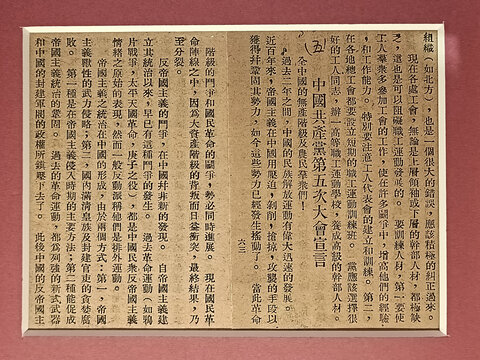 組織（如北方），也是一個很大的錯誤，應該積極的糾正過來。
現在各處工會，無論是上層領袖或下層的幹部人材，都極缺
乏，這也是可以阻礙職工運動發展的。要訓練人材，第一要使
工人羣衆多參加工會的工作，使在許多鬪爭中，增高他們的經驗
和工作能力。特別要注意工人代表會的建立和訓練。第二，
在各地總工會都要設立短期的職工運動訓練班。黨應該選擇很
好的工人同志，辦一高等職工運動學校，養成高級的幹部人材。
（五）中國共產黨第五次大會宣言
全中國的無產階級及農民羣衆們！
過去二年之間，中國的民族解放運動有偉大迅速的發展。
近百年來，帝國主義在中國用壓迫，剝削，搶掠，攻襲的手段以
獲得幷鞏固其勢力，如今這些勢力已經發生搖動了。當此革命
六三
階級的鬥爭和國民革命的鬪爭，勢必同時進展。現在國民革
命陣線之中，因爲大資產階級的背叛而日益衝突，最終結果，乃
至分裂。
反帝國主義的鬥爭，在中國幷非新的發現。自帝國主義建
立其統治以來，早已有這種鬥爭的發生。過去革命運動（如鴉
片戰爭，太平天國革命，庚子之役），都是中國民衆反帝國主義
情緒之原始的表現，然而一般反動派稱他們是排外運動。
帝國主義之統治在中國的形成，由於兩個方式：第一，帝國
主義獸性的武力侵略；第二，國內滿清皇族及封建官吏的貪婪腐
敗。第一種是在帝國主義侵入時期的主要方法；第二種能促成
帝國主義統治的鞏固。過去的革命運動，都爲列強的新式武器
和中國的封建軍閥的政權所鎮壓下去了。此後中國的反帝國主